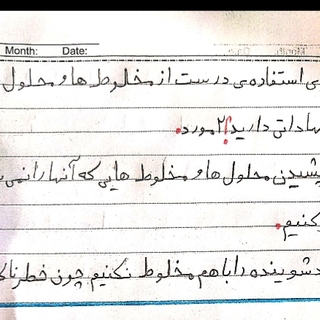 Month: Date:
ی استفاده‌ی درست از مخلوط ها و محلول
داتی دارید؟ ۲ مورد.
محلول ها و مخلوط هایی که آنها را نمی
کنیم.
شوینده را با هم مخلوط نکنیم چون خطرناک